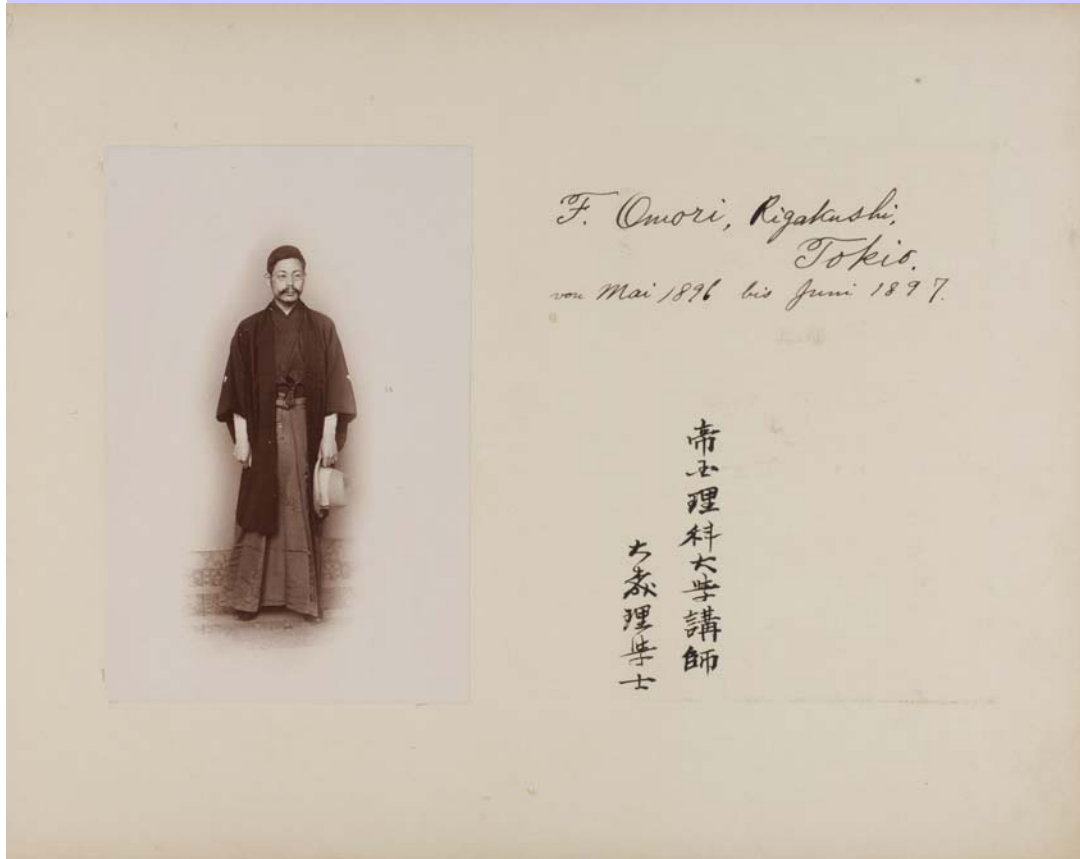 F. Omori, Rigakushi,
Tokio.
von Mai 1896 bis Juni 1897.
帝国理科大学講師
大森理学士